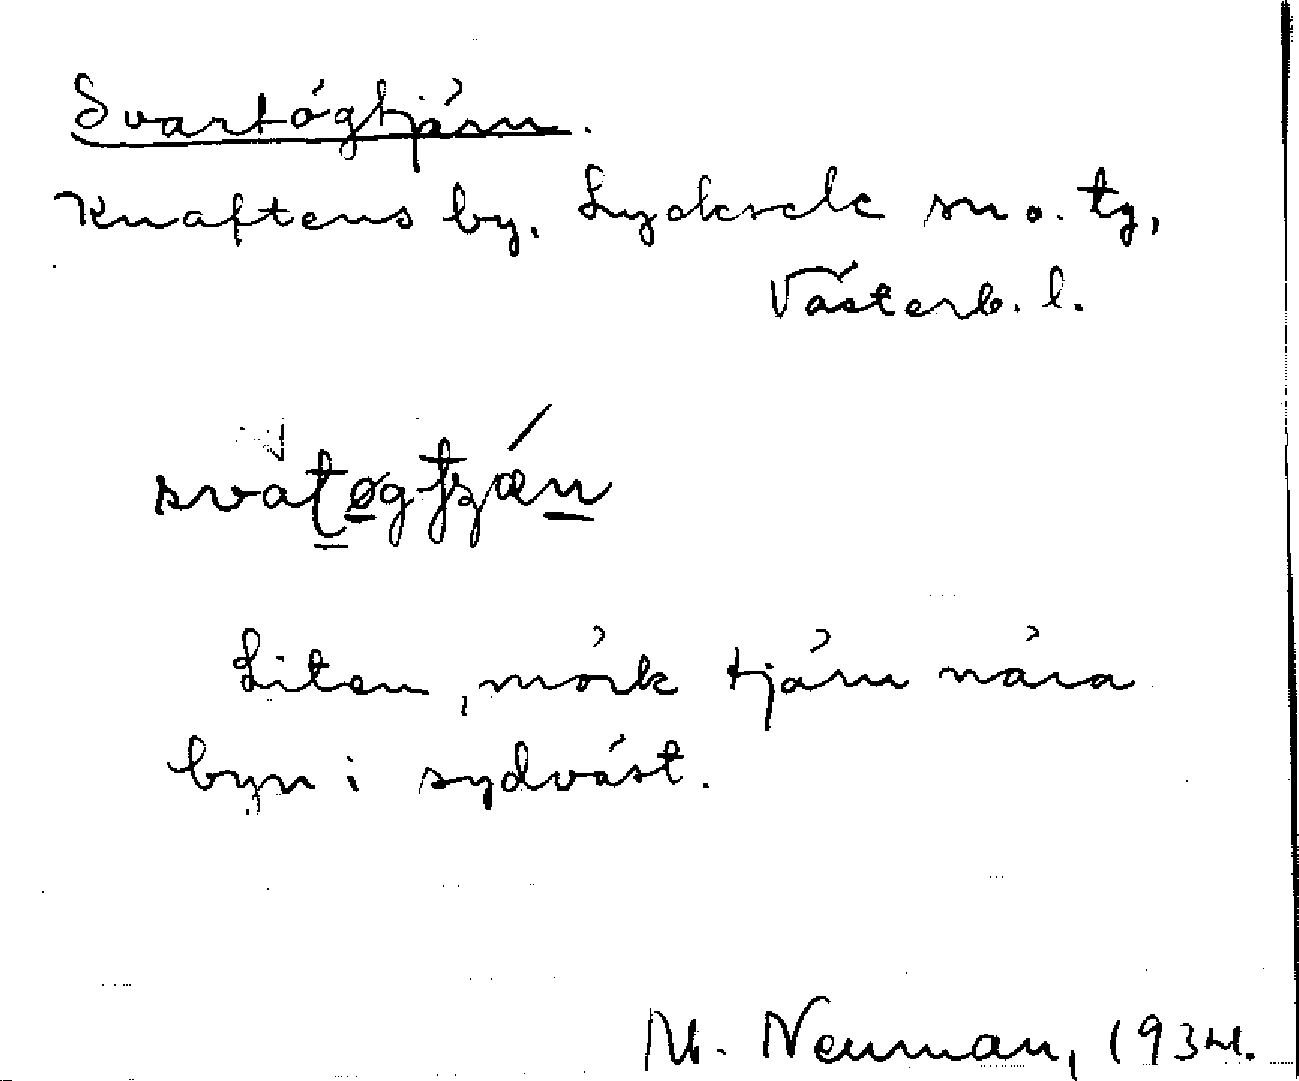 Svartögtjärn.
Knaftens by, Lycksele sn o. tg,
Västerb. l.
Liten, mörk tjärn nära
byn i sydväst.
M. Neuman, 1934.